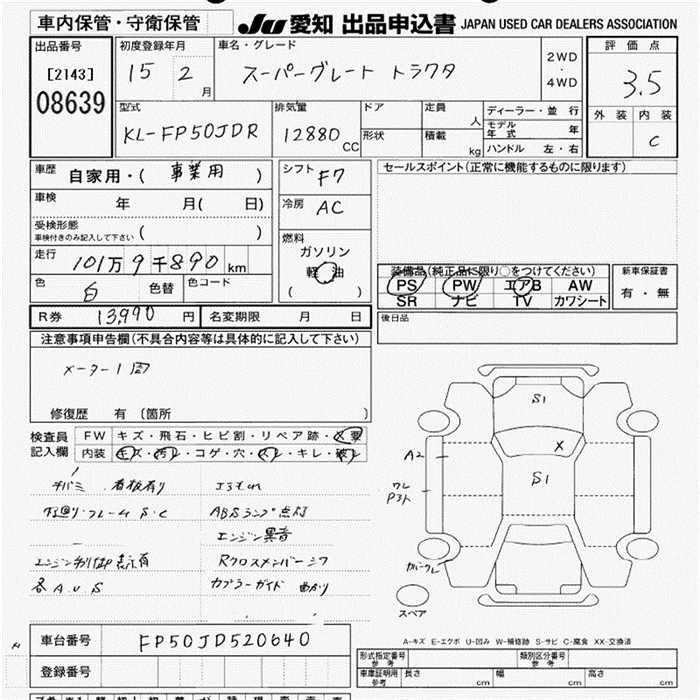 車内保管・守衛保管 JU 愛知 出品申込書 JAPAN USED CAR DEALERS ASSOCIATION
出品番号 初度登録年月 車名・グレード 評価点
[2143] 15 2月 スーパーグレート トラクタ 2WD・4WD 3.5
08639
型式 排気量 ドア 定員 人 ディーラー・並行 外装 内装
KL-FP50JDR 12880cc 形状 積載 kg モデル年式 年 C
ハンドル 左・右
車歴 自家用・(事業用) シフト F7 セールスポイント(正常に機能するものに限ります)
車検 年 月( 日) 冷房 AC
受検形態
車検付きのみ記入して下さい
燃料
ガソリン
軽油
( )
走行 101万9千890km
色 白 色替 色コード
装備品(純正品に限り○をつけてください) 新車保証書
PS PW エアB AW 有・無
SR ナビ TV カワシート
R券 13,990円 名変期限 月 日 後日品
注意事項申告欄(不具合内容等は具体的に記入して下さい)
メーター1周
修復歴 有 〔箇所 〕
検査員 FW キズ・飛石・ヒビ割・リペア跡・X要
記入欄 内装 キズ・汚レ・コゲ・穴・スレ・キレ・破レ
S1
X
A2
S1
ワレ
チバミ 看板有り
フレーム S・C ABSランプ点灯
エンジン異音
Rクロスメンバー
各A.U.S カプラーガイド 曲がり
スペア
A-キズ E-エクボ U-凹み W-補修跡 S-サビ C-腐食 XX-交換済
車台番号 FP50JD520640
登録番号
形式指定番号 参考 類別区分番号 参考
車庫証明用 参考 長さ cm 幅 cm 高さ cm